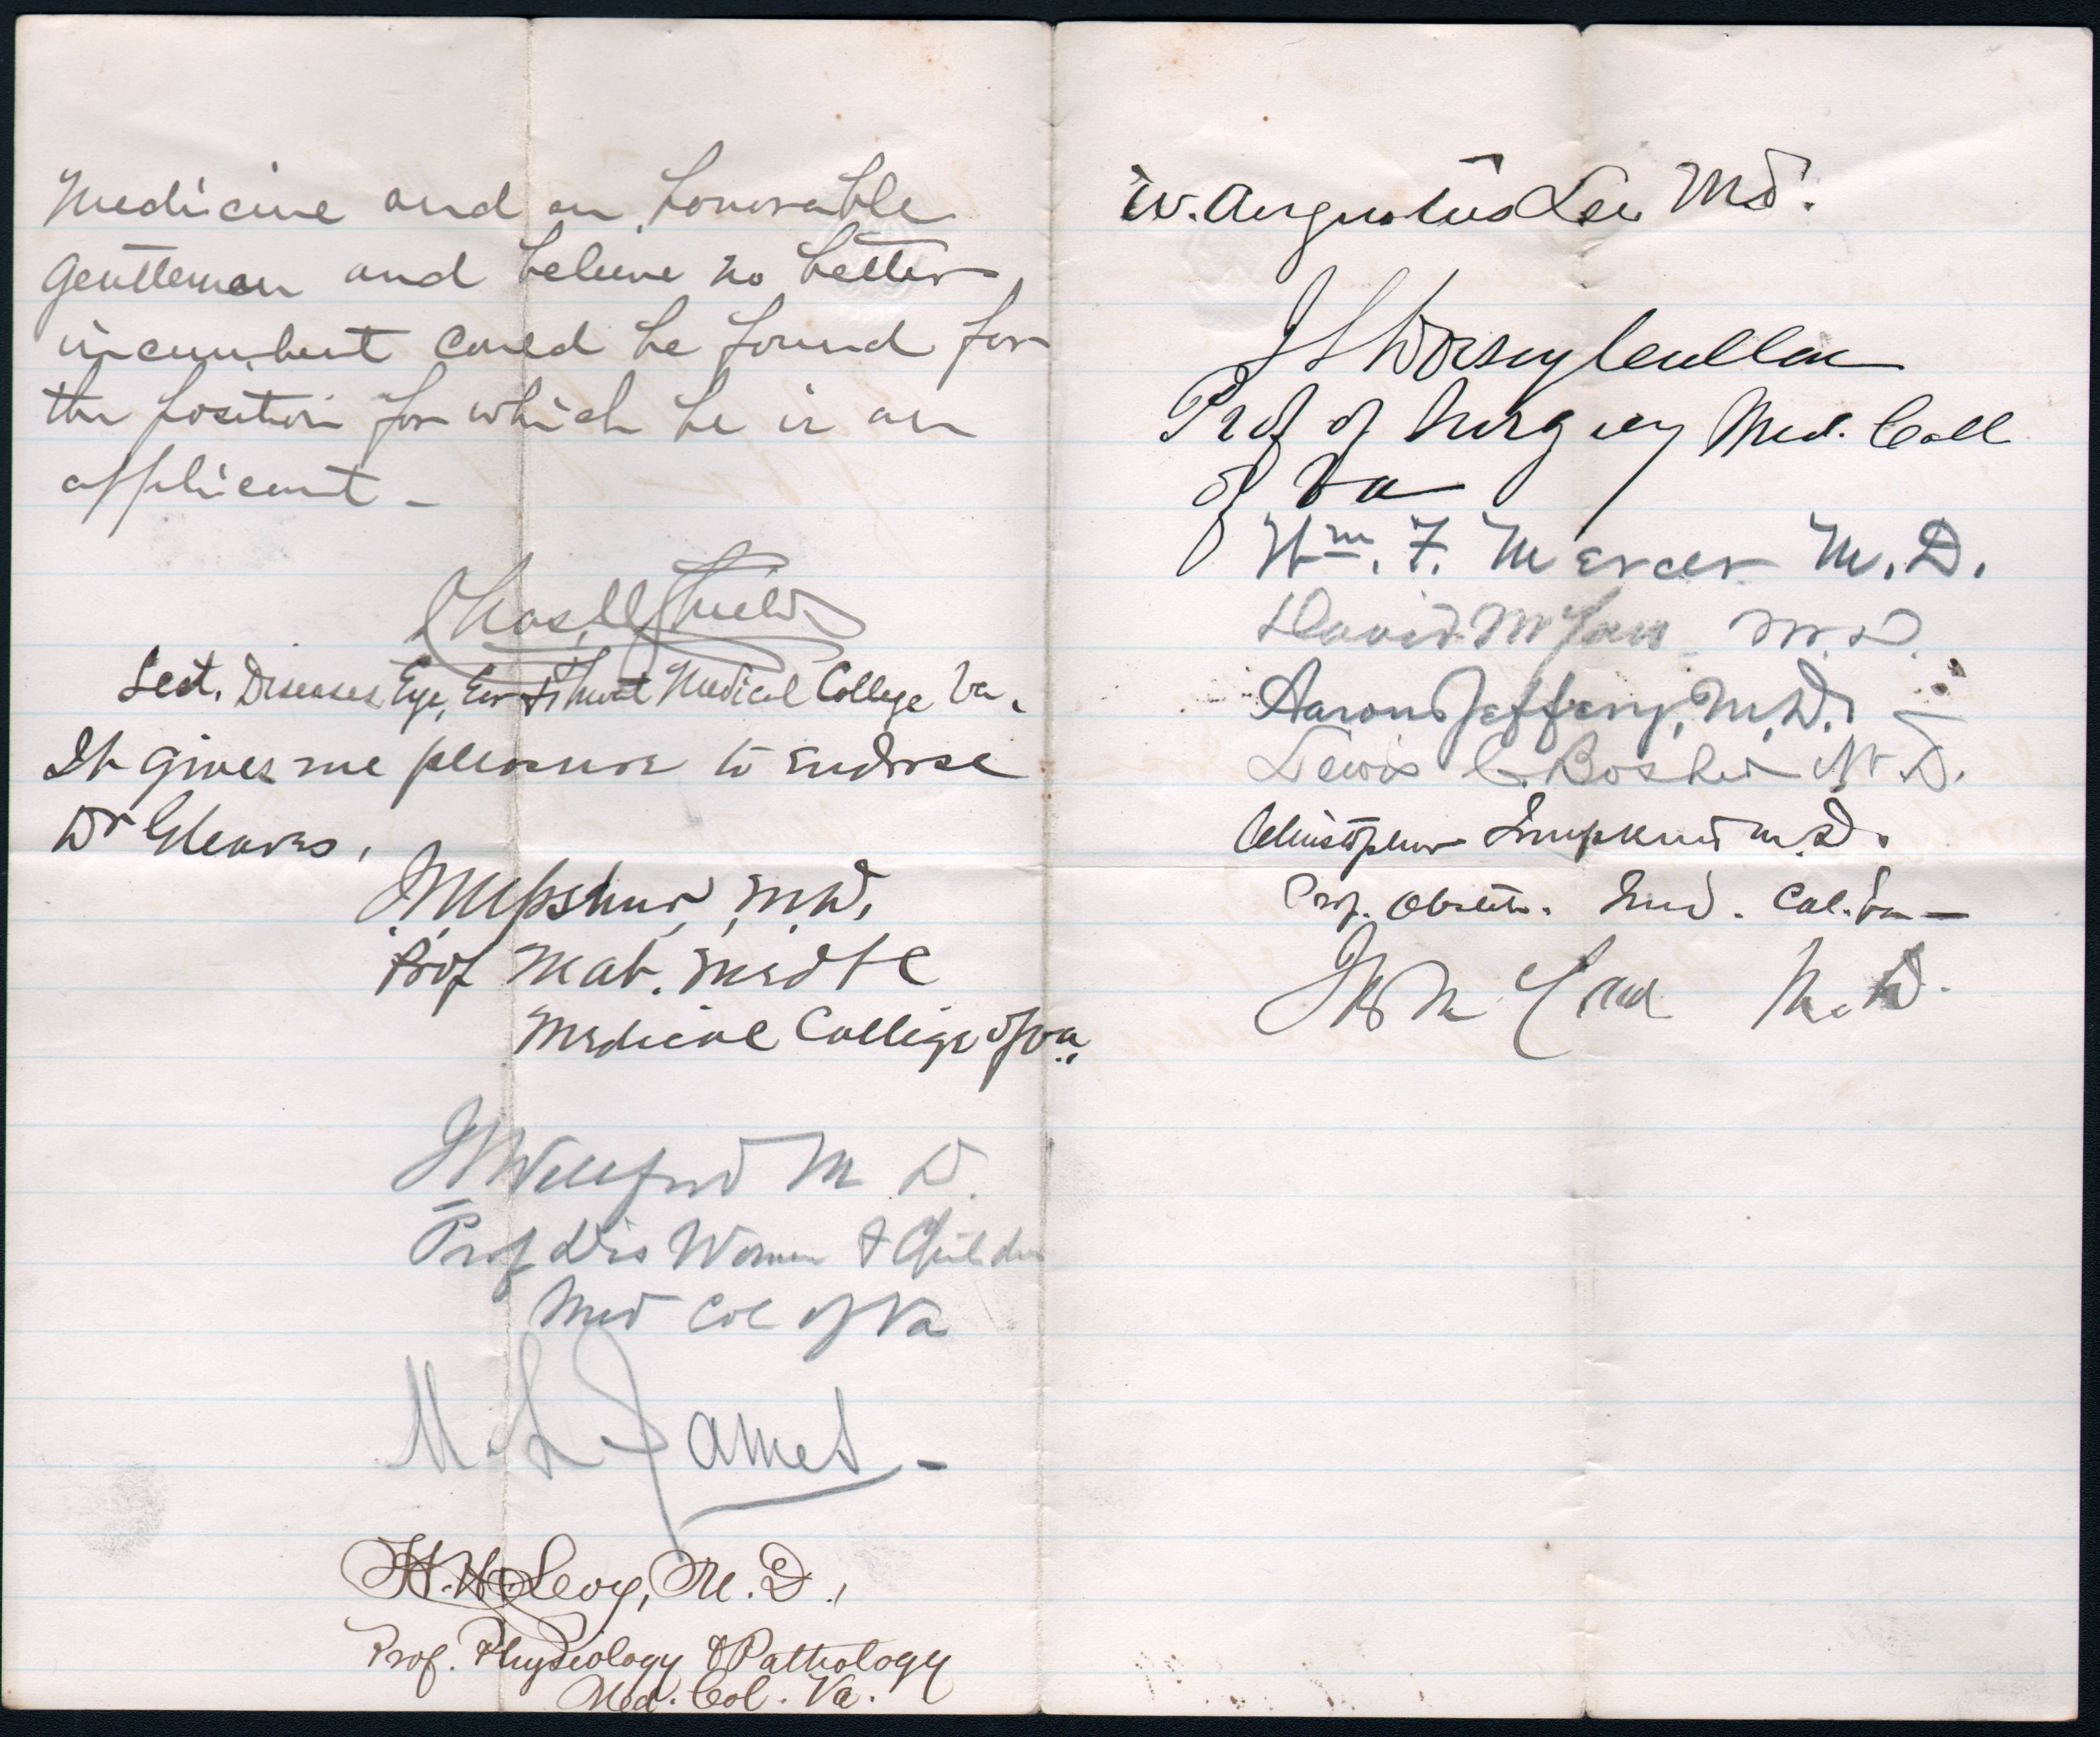 Medicine and an honorable
Gentleman and believe no better
incumbent could be found for
the position for which he is an
applicant -
Chas. M Shields
Lect. Diseases Eye, Ear & Throat Medical College Va.
It gives me pleasure to Endorse
Dr Gleaves,
J. N. Upshur, M.D.
Prof Mat. Med & C
Medical College of Va..
Wellford M D.
Prof Dis Women & Children
Med Col of Va
M. L. James -
H. H. Levy, M.D.,
Prof. Physiology & Pathology
Med. Col. Va.
W. Augustus Lee MD.
J S Dorsey Cullen
Prof of Surgery Med. Coll
of Va
Wm. F. Mercer M.D.
David M. M.D.
Aaron Jeffery, M.D.
Lewis C. Bosher M.D.
Christopher Tompkins M.D.
Prof. Obstet. Med. Col. Va —
M.D.